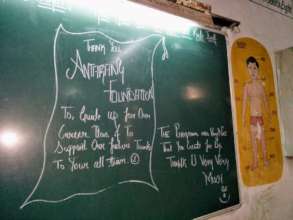 THANK YOU
ANTARANG
FOUNDATION
To Guide up for Our
Career Plan, & To
Support Our future Thanks
To Your all them.
The Program was Very Nice
That for Guide for Up.
Thank U Very Very
Much